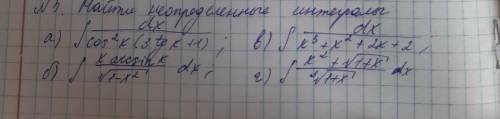 №3. Найти неопределенные интегралы
а) ∫ dx / (cos² x (3 tg x + 1)) ; в) ∫ dx / (x³ + x² + 2x + 2) ,
б) ∫ (x arcsin x / √(1-x²)) dx ; г) ∫ ((x² + √(1+x)) / ³√(1+x)) dx